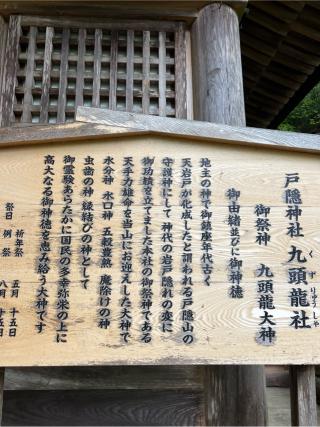 戸隠神社 九頭龍社
くずりゅうしゃ
御祭神 九頭龍大神
御由緒並びに御神徳
地主の神で御鎮座年代古く
天岩戸が化成したと謂われる戸隠山の
守護神にして神代の岩戸隠れの変に
御功績を立てました本社の御祭神である
天手力雄命を当山にお迎えした大神で
水分神 水口神 五穀豊熟 魔除けの神
虫歯の神 縁結びの神として
御霊験あらたかに国民の多幸弥栄の上に
高大なる御神徳を恵み給う大神です
祈年祭 五月 十五日
祭日 例祭 八月 十五日